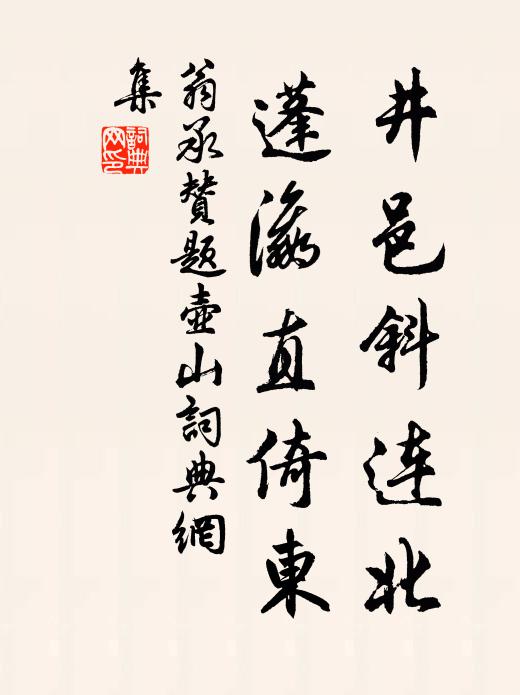 井邑斜連北
蓬瀛直倚東
翁承贊題壺山詞典網
集
詞典
网印